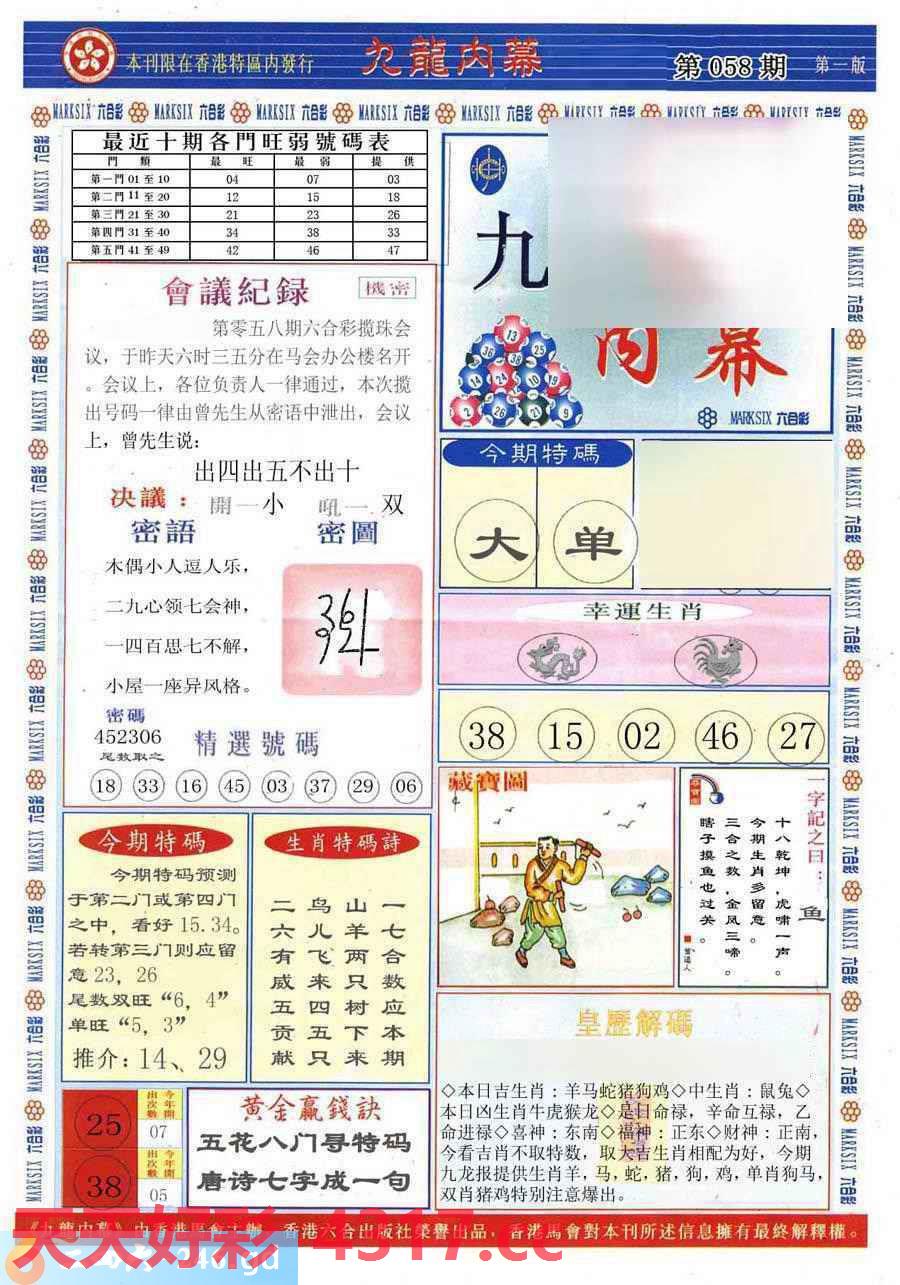 本刊限在香港特區内發行
九龍内幕
第 058 期
第一版
MARKSIX 六合彩
最近十期各門旺弱號碼表
門 類 最 旺 最 弱 提 供
第一門 01 至 10 04 07 03
第二門 11 至 20 12 15 18
第三門 21 至 30 21 23 26
第四門 31 至 40 34 38 33
第五門 41 至 49 42 46 47
會議紀録
機密
第零五八期六合彩揽珠会
议，于昨天六时三五分在马会办公楼名开
。会议上，各位负责人一律通过，本次揽
出号码一律由曾先生从密语中泄出，会议
上，曾先生说：
出四出五不出十
决議： 開一小 吼一 双
密語
密圖
木偶小人逗人乐，
二九心领七会神，
一四百思七不解，
小屋一座异风格。
密碼
452306
尾数取之
精選號碼
18 33 16 45 03 37 29 06
九
内幕
MARKSIX 六合彩
今期特碼
大 单
幸運生肖
38 15 02 46 27
藏寶圖
一字記之曰：
鱼
十八乾坤，虎啸一声。
今期生肖多留意。
三合之数，金凤三啼。
瞎子摸鱼也过关。
今期特碼
今期特码预测
于第二门或第四门
之中，看好 15.34。
若转第三门则应留
意 23，26
尾数双旺“6，4”
单旺“5，3”
推介：14、29
生肖特碼詩
一七合数应本期
山羊两只树下来
鸟儿飞来四五只
二六有威五贡献
25
今年開
出次數
07
38
今年開
出次數
05
黄金赢錢訣
五花八门寻特码
唐诗七字成一句
皇歷解碼
◇本日吉生肖：羊马蛇猪狗鸡◇中生肖：鼠兔◇
本日凶生肖牛虎猴龙◇是日命禄，辛命互禄，乙
命进禄◇喜神：东南◇福神：正东◇财神：正南，
今看吉肖不取特数，取大吉生肖相配为好，今期
九龙报提供生肖羊，马，蛇，猪，狗，鸡，单肖狗马，
双肖猪鸡特别注意爆出。
香港六合出版社榮譽出品，香港馬會對本刊所述信息擁有最終解釋權。
天天好彩 4317.cc
246.gd